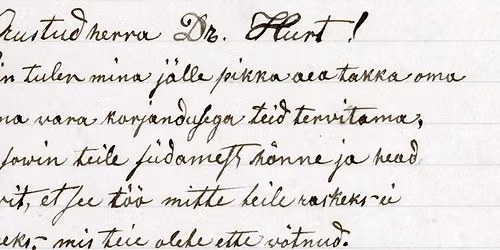 Austud herra Dr. Hurt!
in tulen mina jälle pikka aea takka oma
na vara korjandusega teid tervitama,
sowin teile südamest hönne ja head
vit, et see töö mitte teile raskeks ei
eks, mis teie olete ette võtnud.